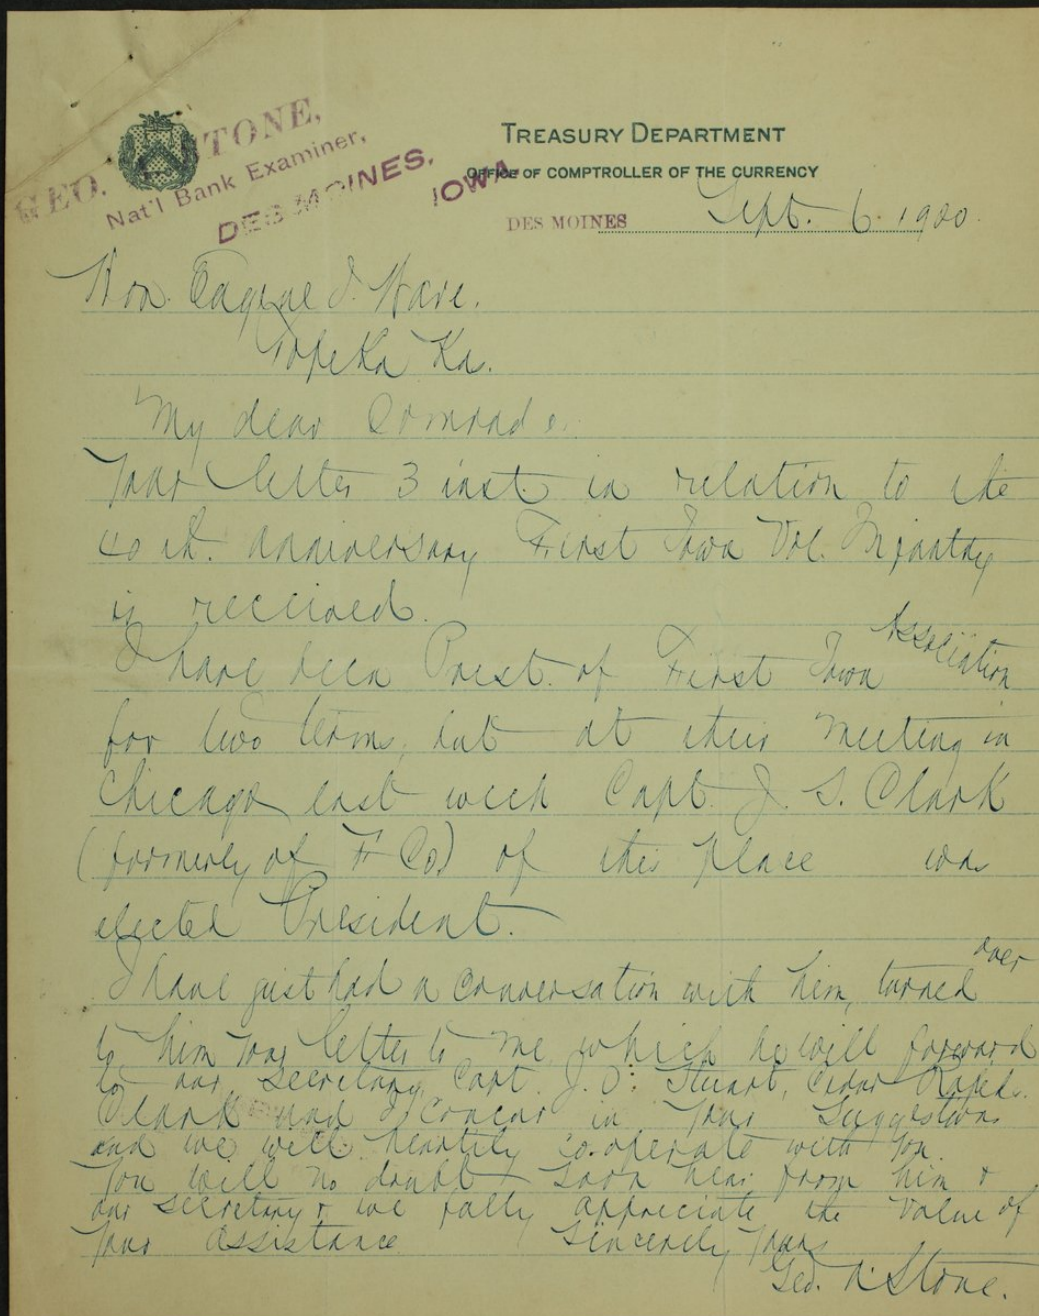 GEO. STONE,
Nat'l Bank Examiner,
DES MOINES, IOWA
TREASURY DEPARTMENT
OFFICE OF COMPTROLLER OF THE CURRENCY
DES MOINES Sept. 6. 1900.
Hon. Eugene F. Ware.
Topeka Ka.
My dear Comrade.
Your letter 3 inst. in relation to the
40 th. anniversary First Iowa Vol. Infantry
is received.
I have been Prest. of First Iowa Association
for two terms, but at their meeting in
Chicago last week Capt. J. S. Clark
(formerly of F Co) of this place was
elected President.
I have just had a conversation with him, turned over
to him your letter to me which he will forward
to our secretary, Capt. J. O. Stuart, Cedar Rapids.
Clark and I concur in your suggestions
and we will heartily co-operate with you.
You will no doubt soon hear from him &
our secretary & we fully appreciate the value of
your assistance Sincerely Yours
Geo. A. Stone.